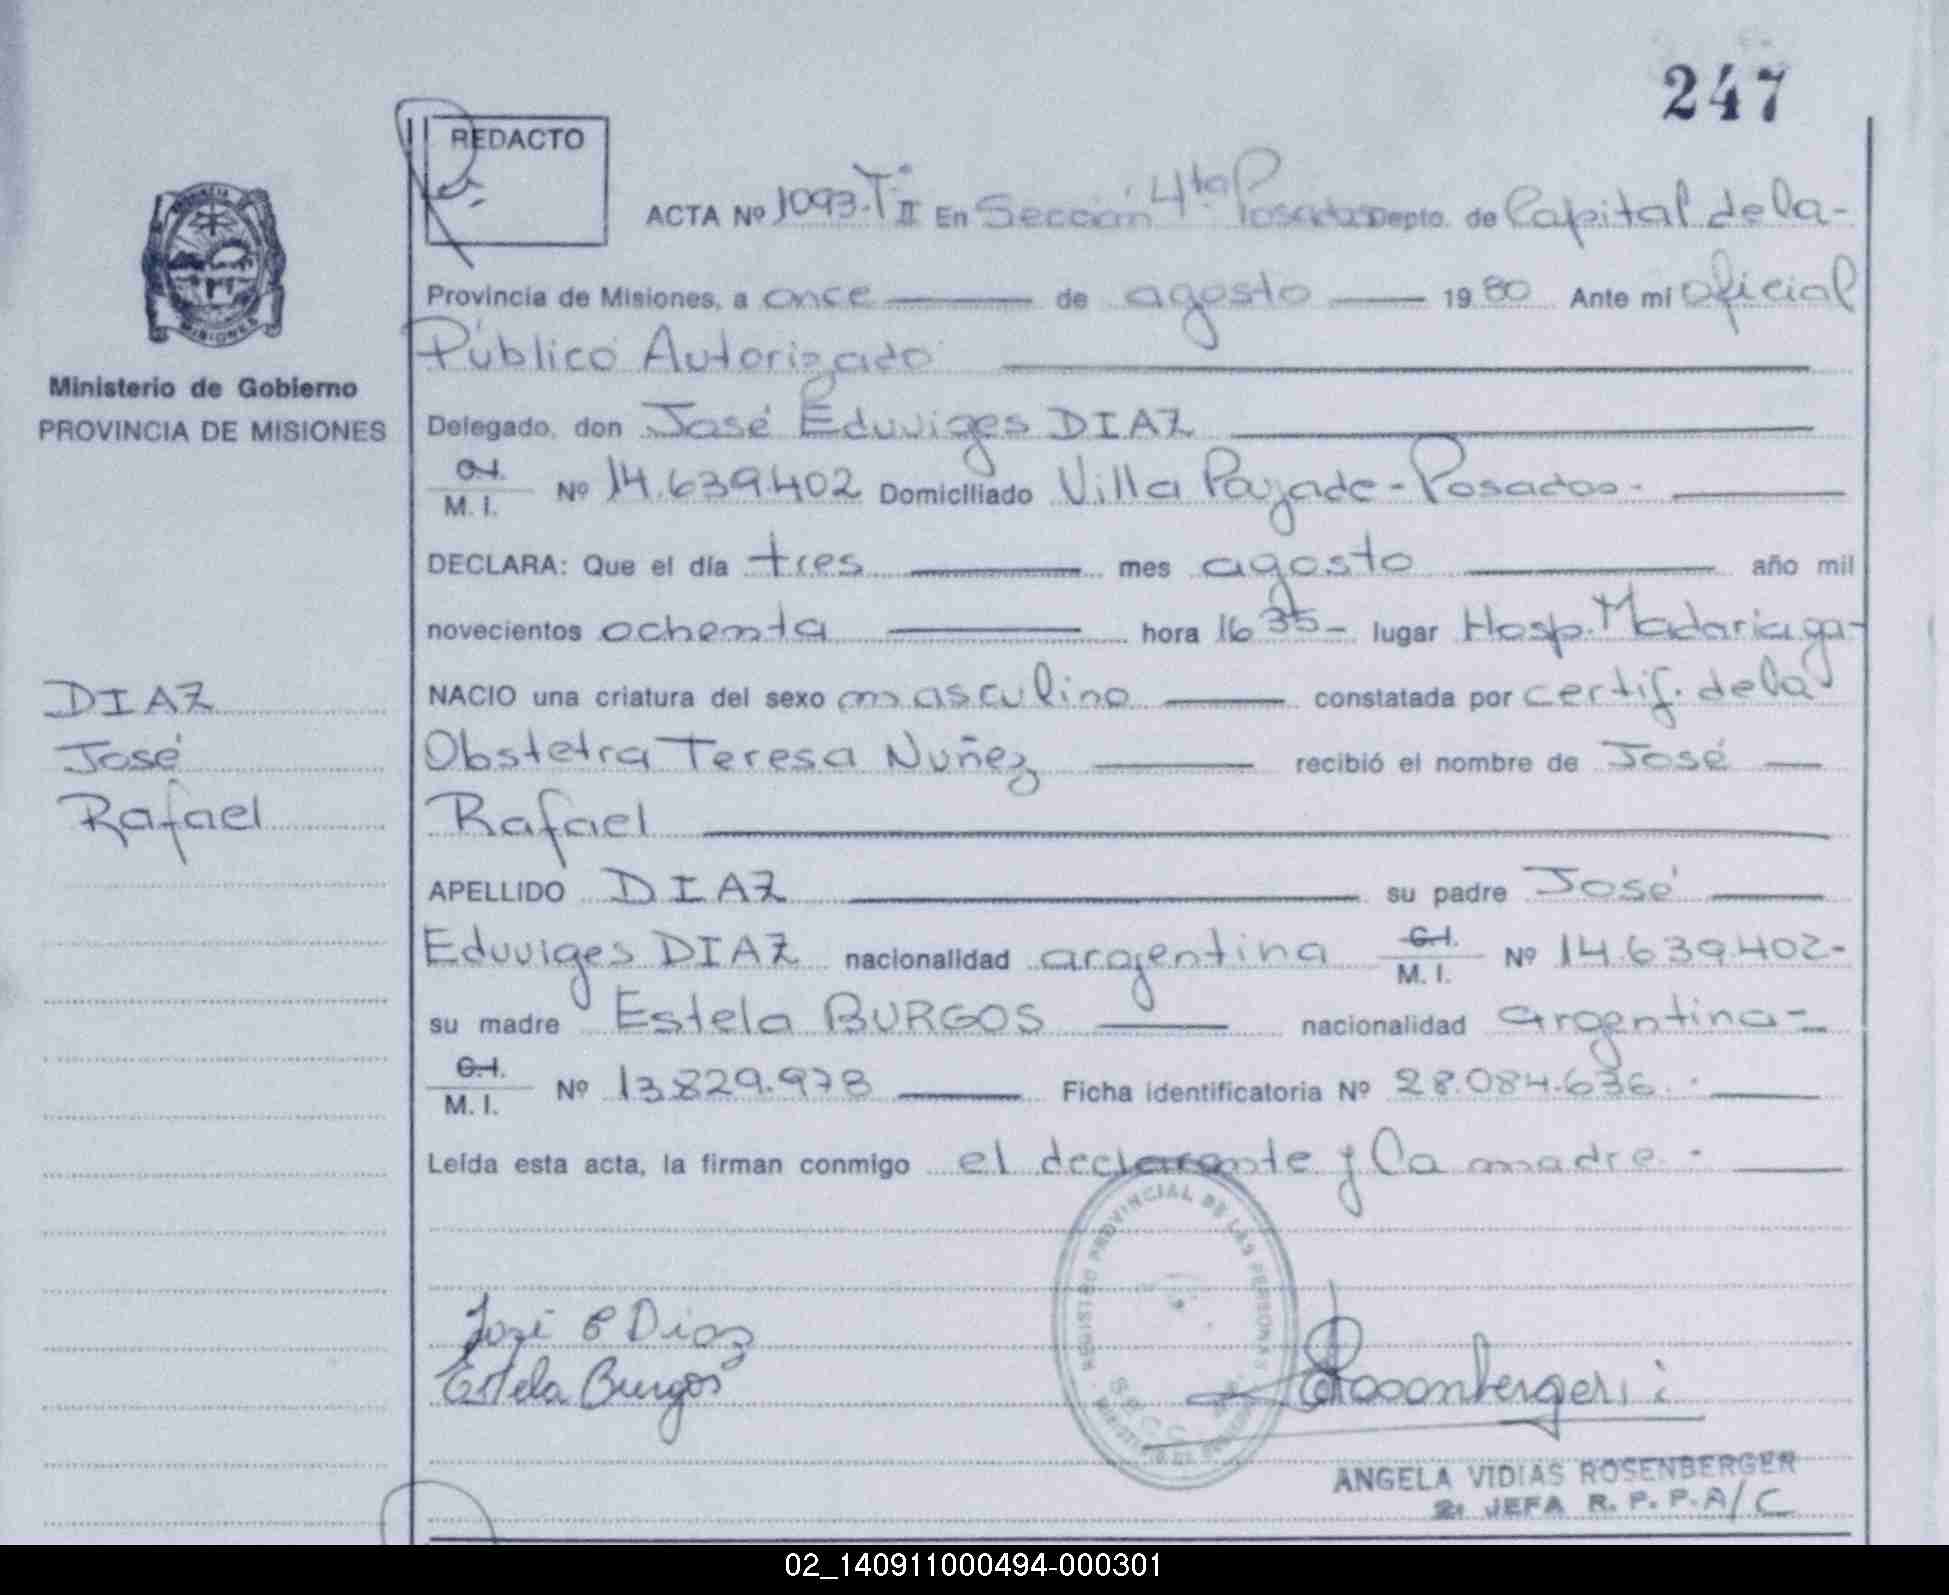 247
REDACTO
ACTA Nº 1093-Tº II En Sección 4ta Posadas Depto. de Capital de la-
Provincia de Misiones, a once de agosto 1980 Ante mi oficial
Público Autorizado
Delegado, don José Eduviges DIAZ
C.I. M. I. Nº 14.639.402 Domiciliado Villa - Posadas-
DECLARA: Que el día tres mes agosto año mil
novecientos ochenta hora 16 35- lugar Hosp. Madariaga-
NACIO una criatura del sexo masculino constatada por certif. de la
Obstetra Teresa Nuñez recibió el nombre de José
Rafael
APELLIDO DIAZ su padre José
Eduviges DIAZ nacionalidad argentina C.I. M. I. Nº 14.639.402-
su madre Estela BURGOS nacionalidad argentina-
C.I. M. I. Nº 13.829.978 Ficha identificatoria Nº 28.084.636.
Leída esta acta, la firman conmigo el declarante y la madre.-
Ministerio de Gobierno
PROVINCIA DE MISIONES
DIAZ
José
Rafael
REGISTRO PROVINCIAL DE LAS PERSONAS
José E Diaz
Estela Burgos
ANGELA VIDIAS ROSENBERGER
2ª JEFA R. P. P. A/C
02_140911000494-000301